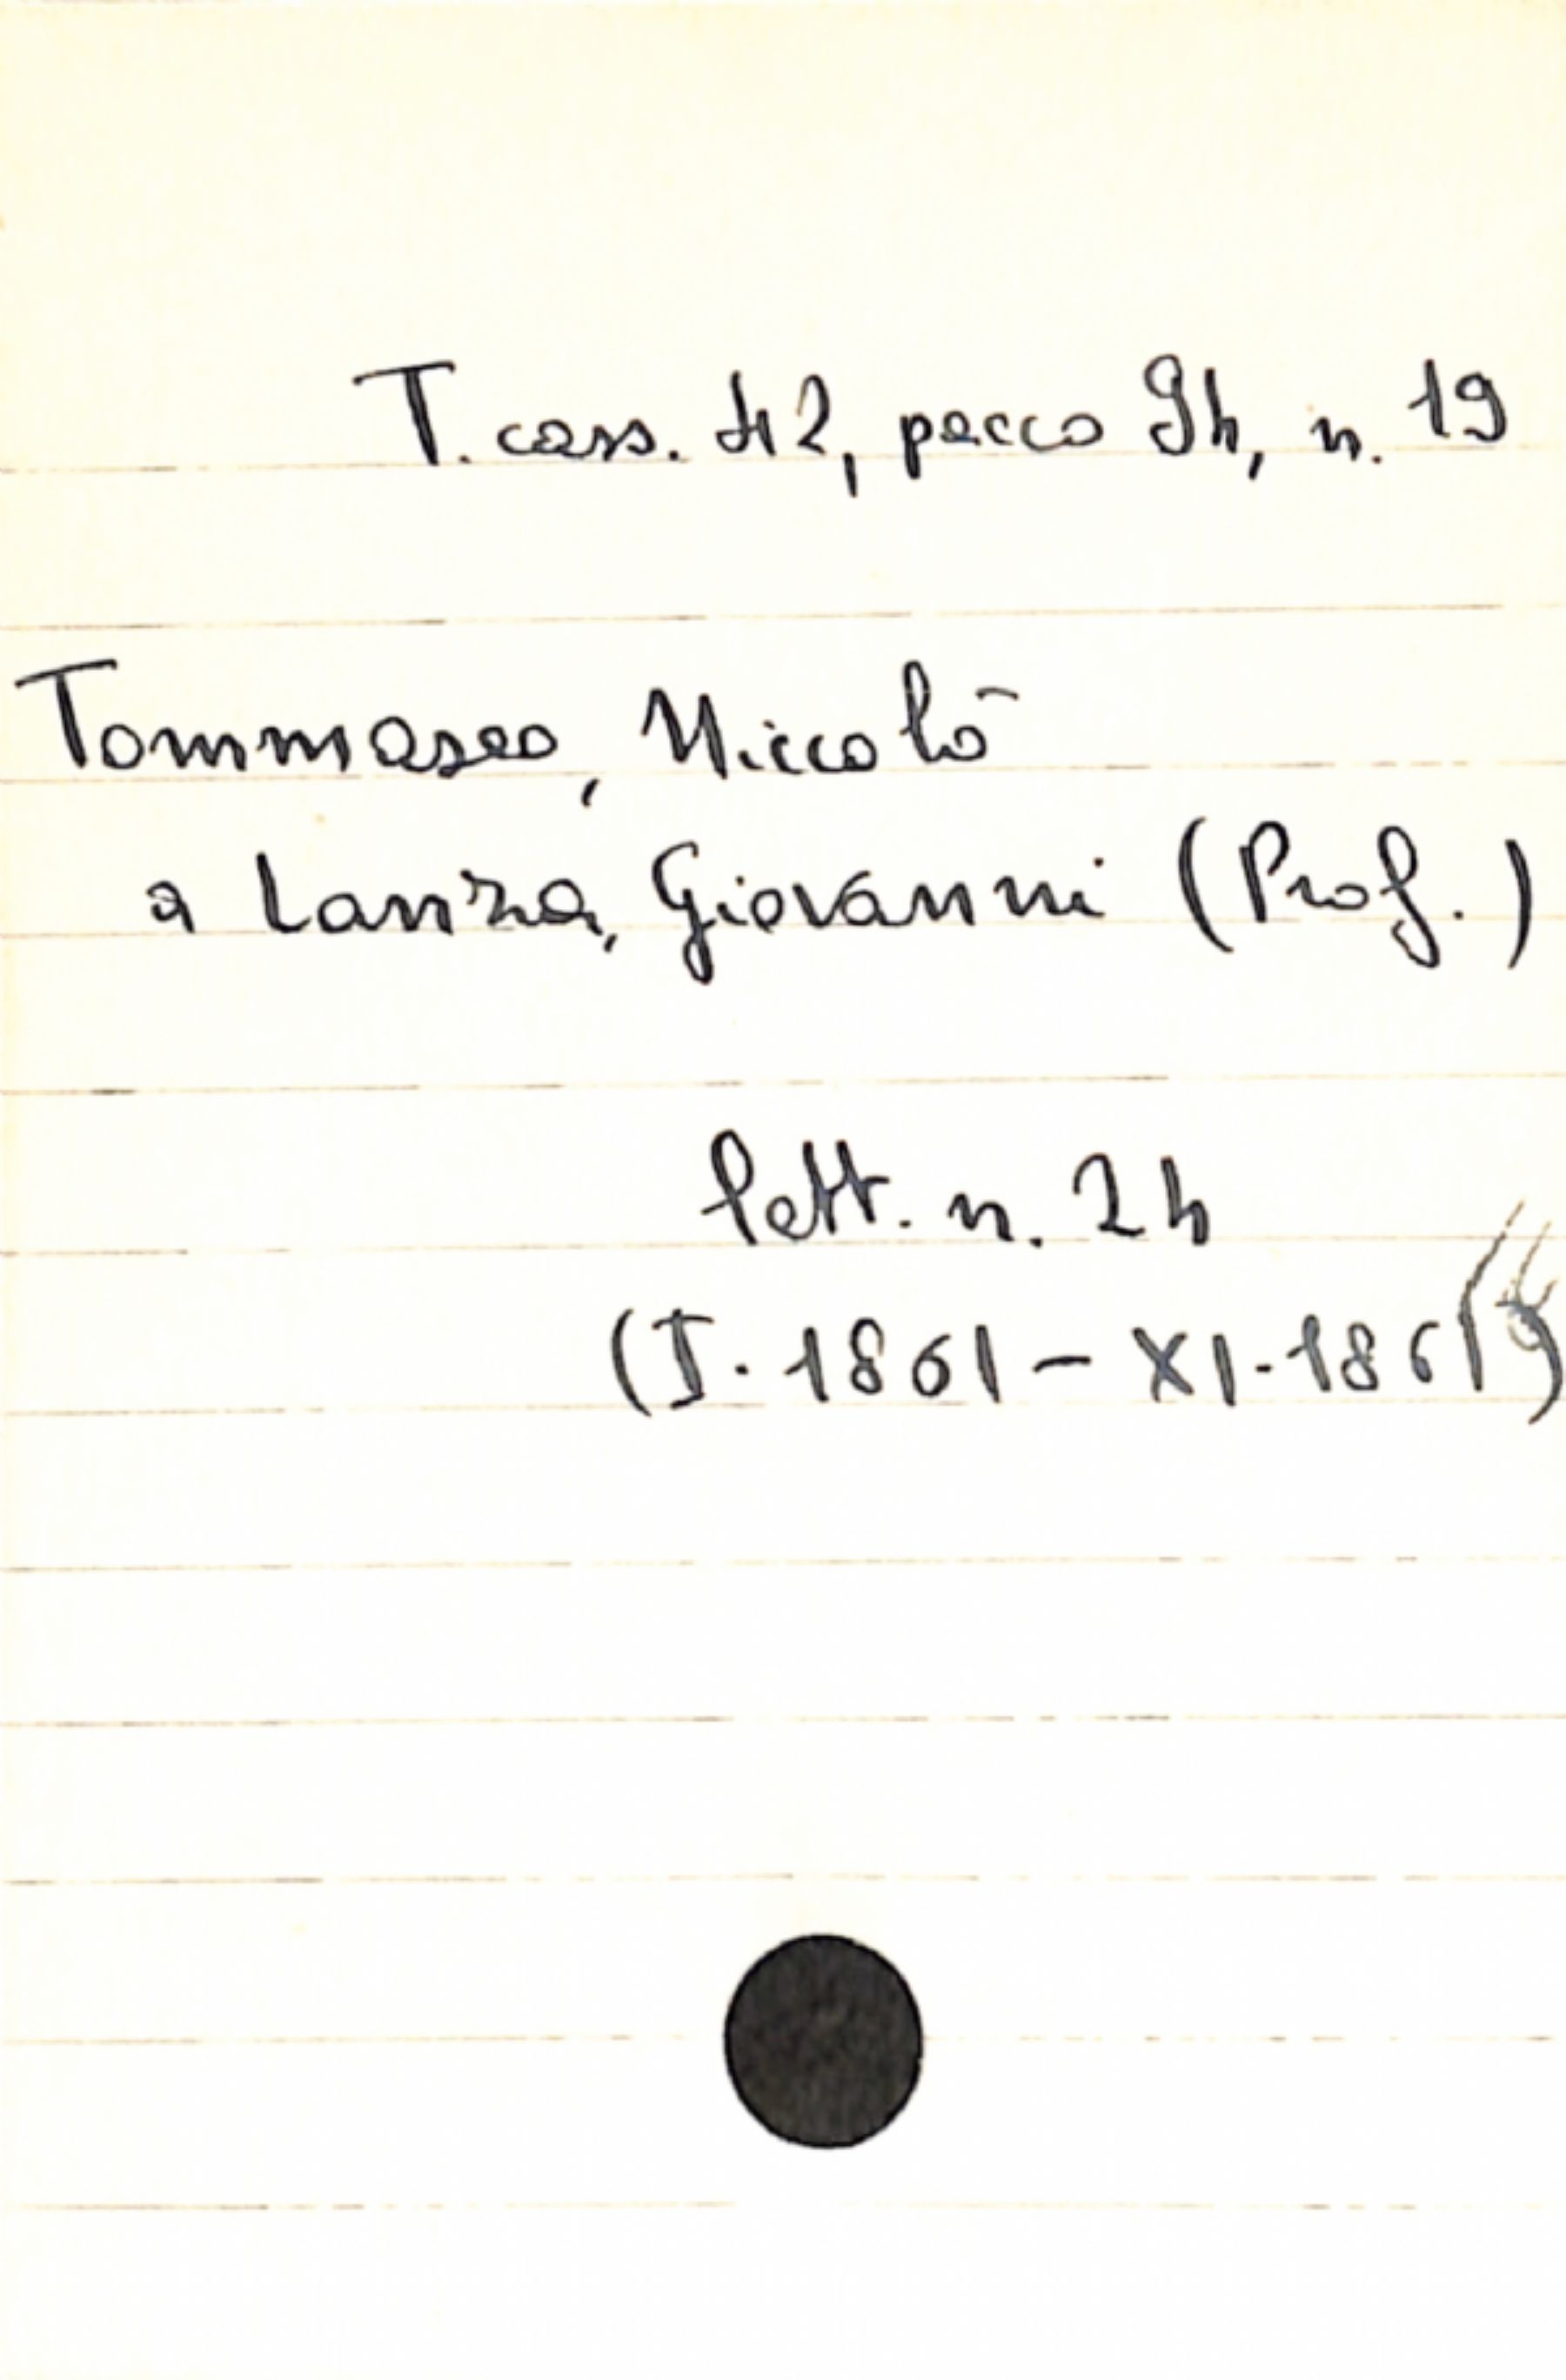 T. cass. 42, pacco 94, n. 19
Tommaseo, Niccolò
a Lanza, Giovanni (Prof.)
lett. n. 24
(I. 1861 – XI. 186